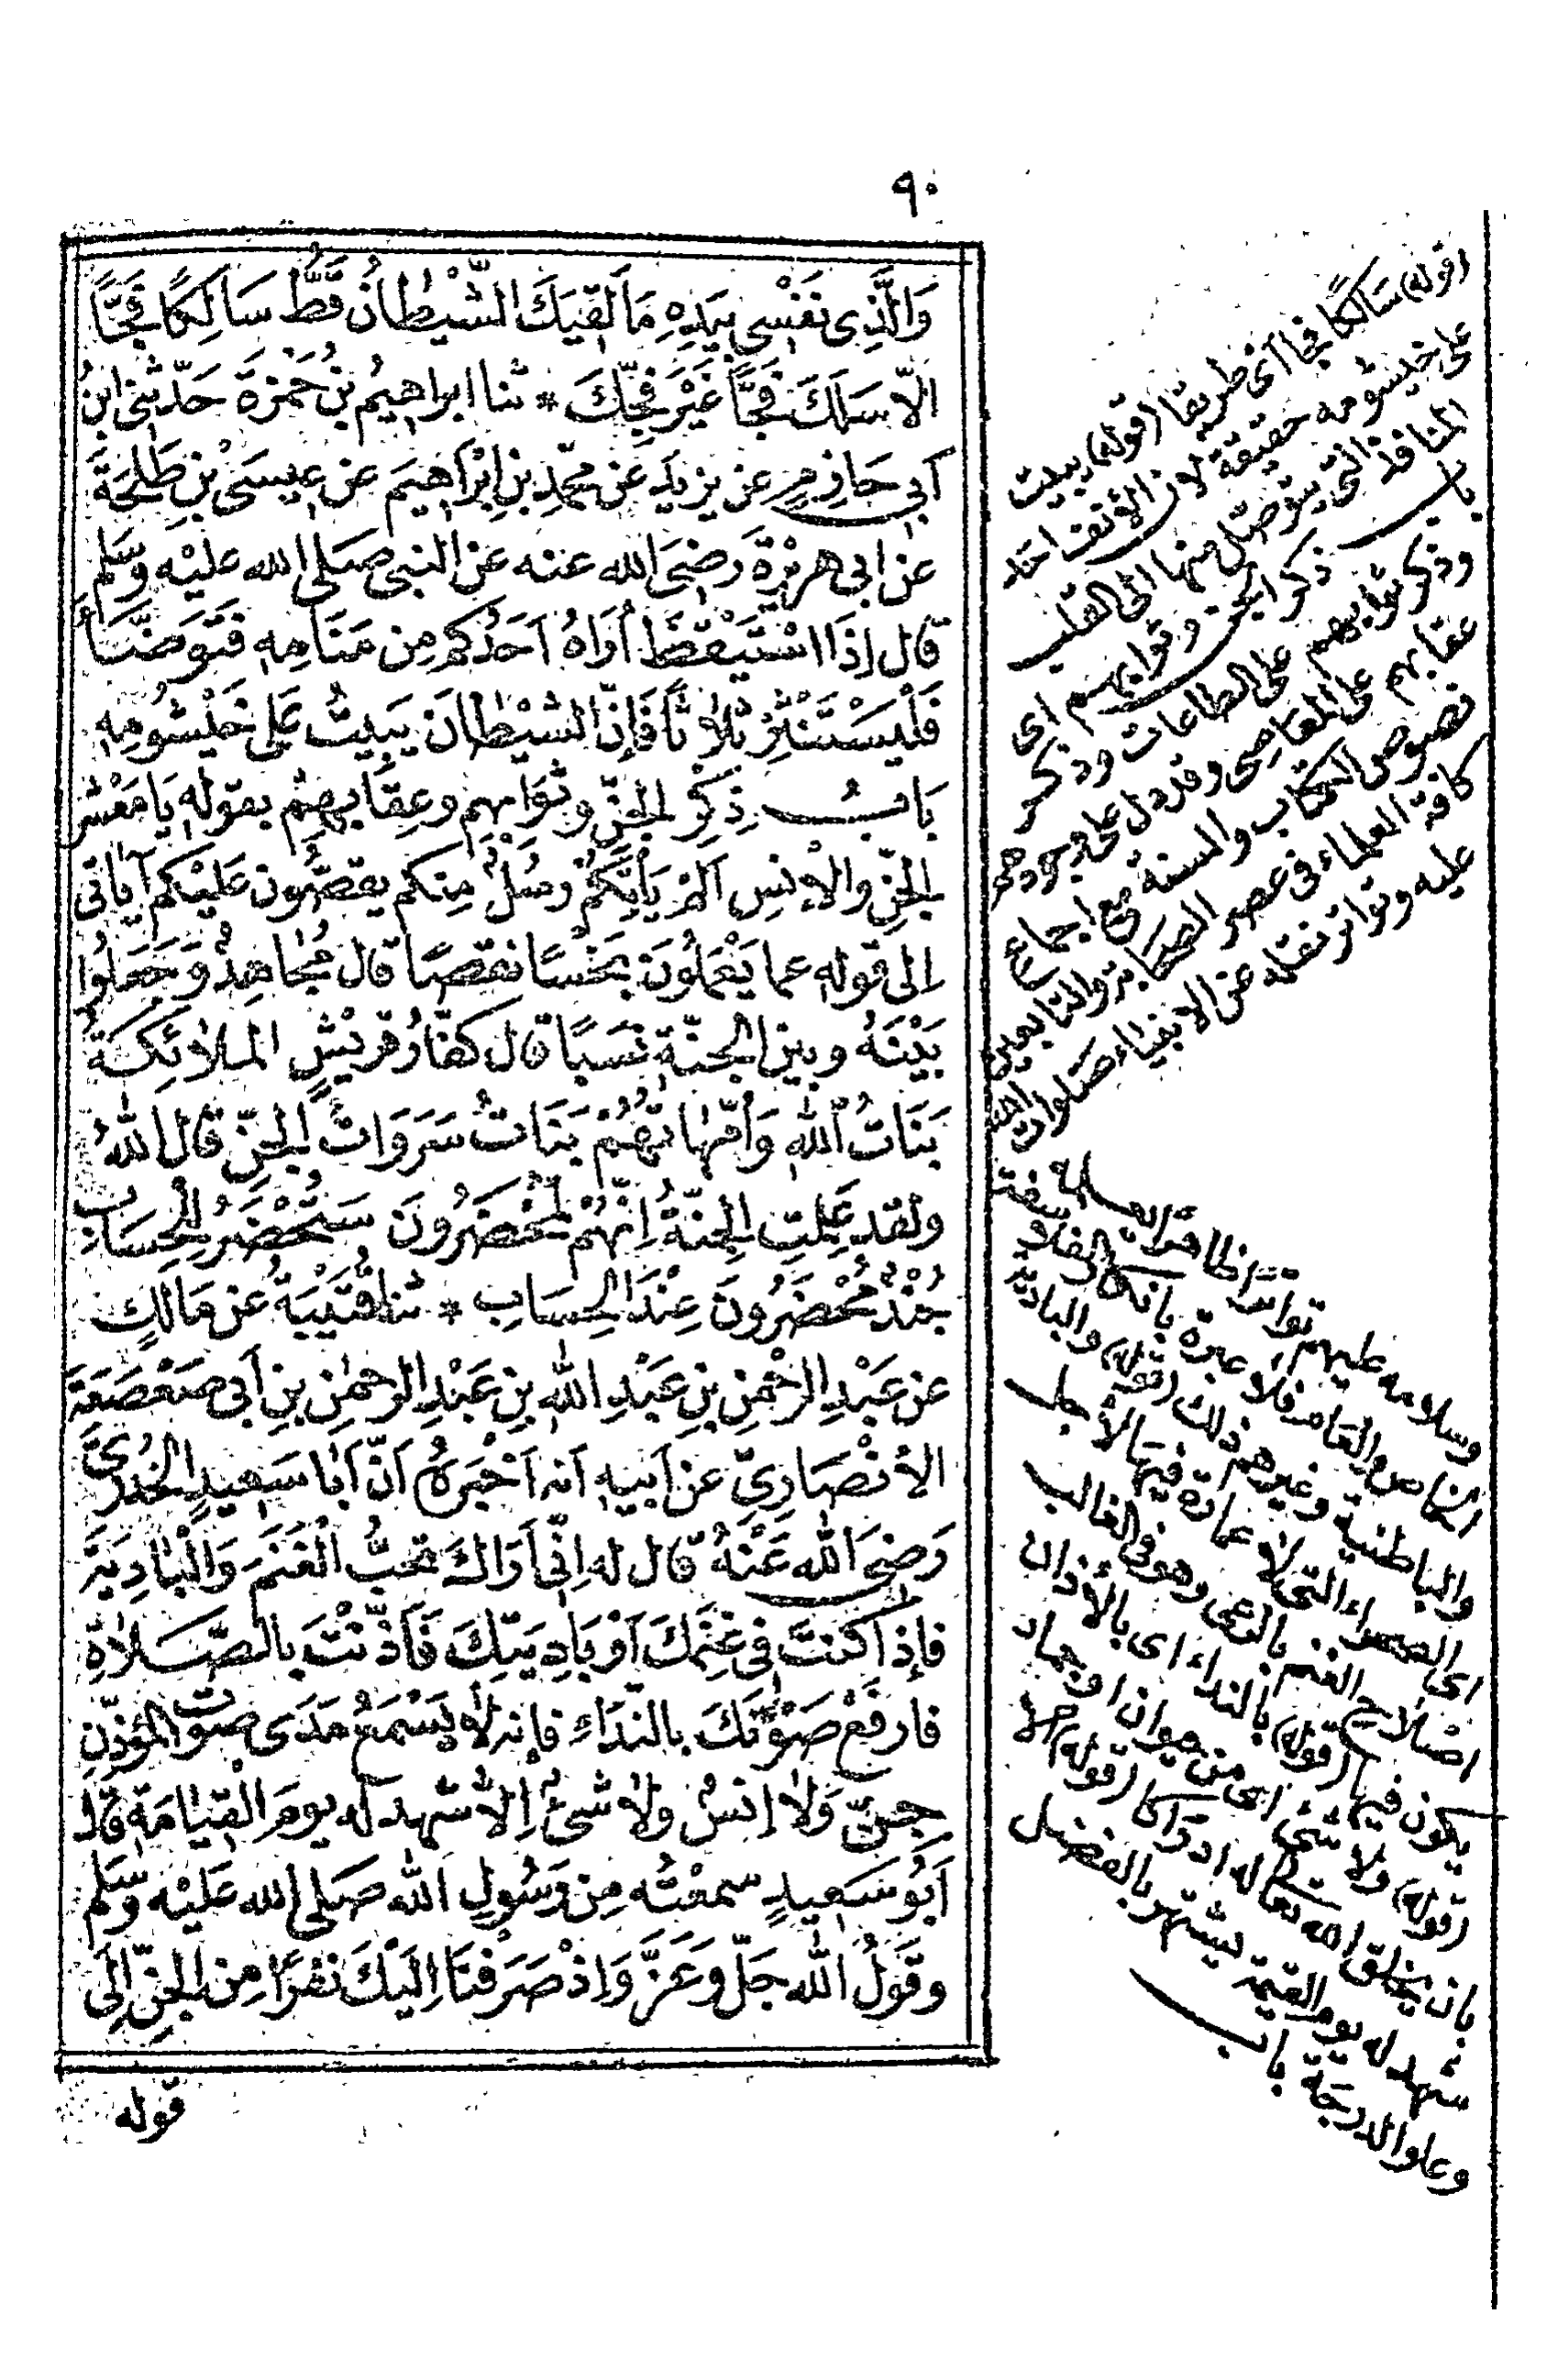 ٩٠
وَالَّذِى نَفْسِى بِيَدِهِ مَا لَقِيَكَ الشَّيْطَانُ قَطُّ سَالِكًا فَجًّا
الّا سَلَكَ فَجًّا غَيْرَ فَجِّكَ * ثنا ابراهِيمُ بْنُ حَمْزَةَ حَدّثَنِى ابنُ
اَبِى حَازِمٍ عن يَزِيدَ عَن مُحَمَّدِ بنِ اِبْرَاهِيمَ عَن عِيسَى بْنِ طَلْحَةَ
عن ابى هريْرَةَ رَضِىَ الله عنه عن النبى صَلى الله عليْه وسَلم
قال اِذَا اسْتَيْقَظَ اُرَاهُ اَحَدُكم مِن مَنَامِهِ فَتَوَضَّأَ
فَلْيَسْتَنْثِرْ ثلاثًا فَاِنَّ الشيْطانَ يَبِيتُ عَلى خَيْشُومِهِ
بَابُ ذِكْرِ الجِنِّ وثَوَابِهِم وعِقَابِهِمْ بقوله يَا مَعْشَرَ
الجِنّ والاِنسِ اَلَمْ يَأتِكُمْ رُسُلٌ مِنكم يقصُّون عَليْكم آيَاتى
اِلى قوله عما يَعْمَلُونَ بَخْسًا نقصًا قال مُجَاهِدٌ وَجَعَلُوا
بَيْنَهُ وبين الجِنَّةِ نَسَبًا قال كفّارُ قرَيْشٍ الملائكةُ
بَنَاتُ اللهِ وَاُمَّهَاتُهُمْ بَنَاتُ سَرَوَاتِ الجِنّ قال اللهُ
ولقد عَلِمَتِ الجِنَّةُ اِنّهُمْ لَمُحْضَرُونَ سَتُحْضَرُ لِلْحِسَابِ
جُنْدٌ مُحْضَرُونَ عِنْدَ الحِسَابِ * ثنا قُتَيْبَةُ عَن مَالِكٍ
عن عَبْدِ الرحْمنِ بنِ عَبْدِ اللهِ بنِ عَبْدِ الرحمٰنِ بنِ اَبى صَعْصَعَةَ
الاَنْصَارِىِّ عن اَبيهِ اَنه اَخْبَرَهُ اَنَّ اَبا سَعِيدٍ الخُدْرِىَّ
رَضىَ الله عَنْهُ قال له اِنّى اَرَاكَ تحبُّ الْغَنَمَ وَالْبَادِيَةَ
فإذا كنتَ فى غَنَمِكَ اَوْ بَادِيَتِكَ فَاَذَّنْتَ بالصَّلاةِ
فارفَعْ صَوْتَكَ بالنّدَاءِ فإنه لا يَسْمَعُ مَدَى صَوْتِ المؤذِّنِ
جِنٌّ وَلا اِنسٌ ولا شَىْءٌ اِلا شهِدَ له يومَ القِيَامَةِ قال
اَبُو سَعِيدٍ سمعْتُه مِن رَسُولِ الله صَلى الله عَليْه وَسَلم
وقَوْلُ الله جَلّ وَعَزَّ وَاِذْ صَرَفْنَا اِلَيْكَ نَفَرًا مِن الجِنِّ اِلَى
قوله
(قوله) سَالكًا فجا اى طريقا (قوله) يبيت
على خيشومه حقيقة لان الأنف احد
المنافذ التى يتوصّل منها الى القلب
باب ذكر الجن وثوابهم اى
وذكر ثوابهم على الطاعات وذكر
عقابهم على المعاصى وقد دل على وجودهم
نصوص الكتاب والسنة مع اجماع
كافة العلماء فى عصر الصحابة والتابعين
عليه وتواتر نقله عن الانبياء صلوات الله
وسلامه عليهم تواترا ظاهرا يعلمه
الخاص والعام فلا عبرة بانكار الفلاسفة
والباطنية وغيرهم ذلك (قوله) والبادية
اى الصحراء التى لا عمارة فيها لأجل
اصلاح الغنم بالرعى وهو فى الغالب
يكون فيها (قوله) بالنداء اى بالأذان
(قوله) ولا شئ اى من حيوان او جماد
بان يخلق الله تعالى له ادراكا (قوله) الا
شهد له يوم القيمة ليشتهر بالفضل
وعلو الدرجة باب